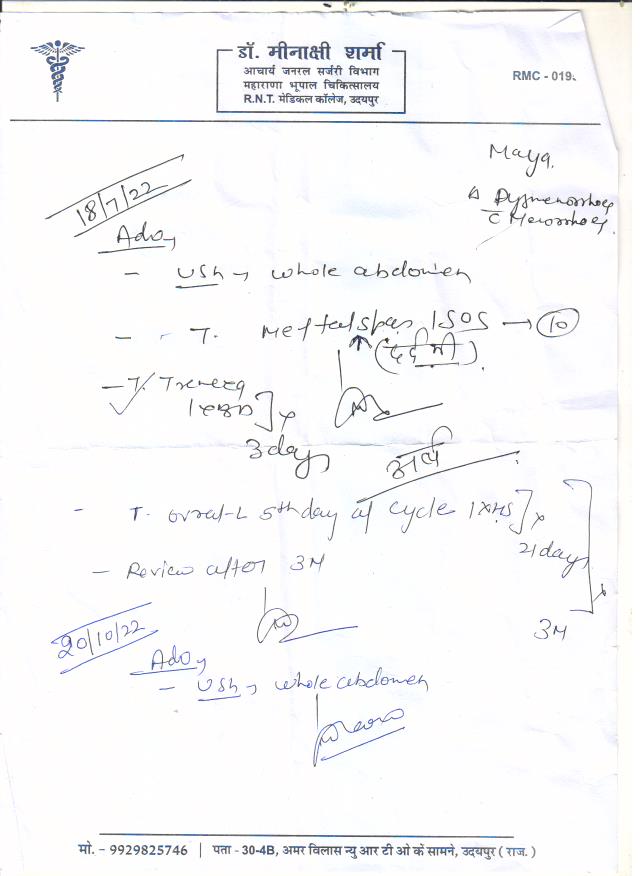 डॉ. मीनाक्षी शर्मा
आचार्य जनरल सर्जरी विभाग
महाराणा भूपाल चिकित्सालय
R.N.T. मेडिकल कॉलेज, उदयपुर
RMC - 019
Maya.
Δ Dysmenorrhoea
c̄ Menorrhoea
18/7/22
Adv
- USG → whole abdomen
- T. Meftalspas 1SOS → 10
(दर्द में)
- T. Trenexa
1xBD] x
3 days
- T. ovral-L 5th day of cycle 1xHS] x
21 days
- Review after 3M
x
3M
20/10/22
Adv
- USG → whole abdomen
मो. - 9929825746 | पता - 30-4B, अमर विलास न्यु आर टी ओ के सामने, उदयपुर ( राज. )